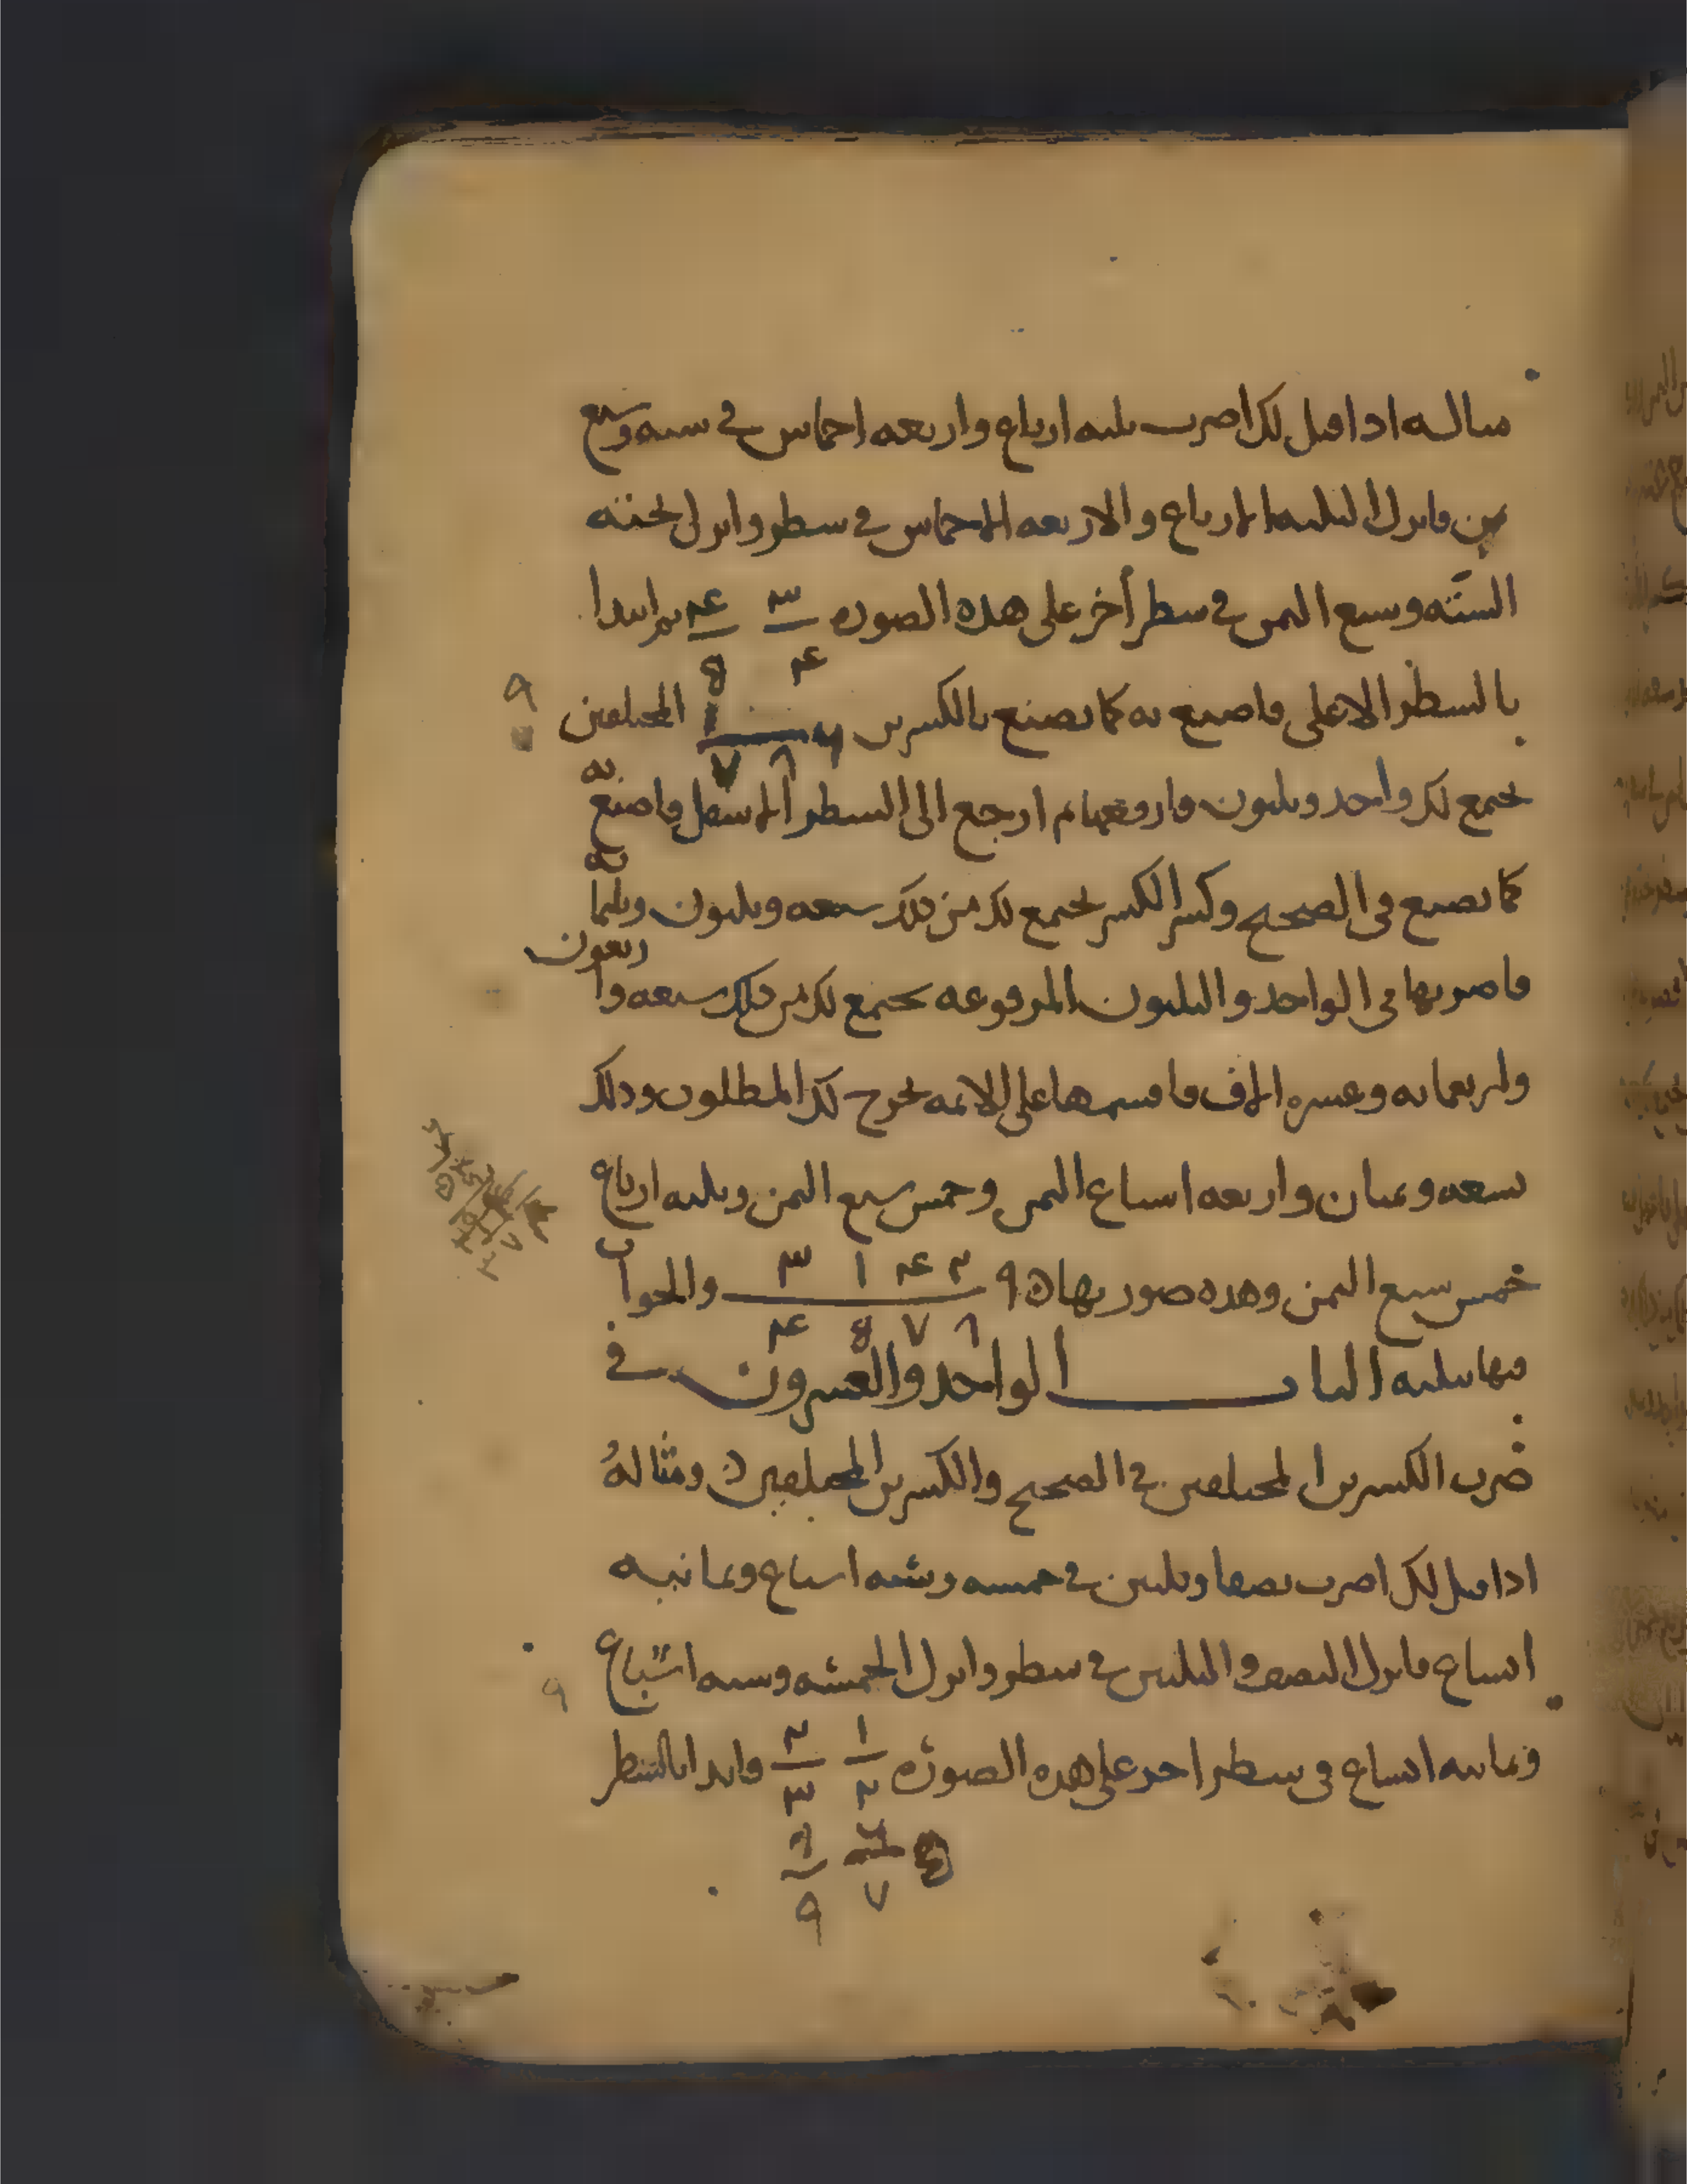 مثاله اذا قيل لك اضرب ثلثه ارباع واربعه اخماس في سته وسبع
ثمن فانزل الثلثه الارباع والاربعه الاخماس في سطر وانزل تحته
الستّه وسبع الثمن في سطر أخر على هذه الصوره ٣/٤ ٤/٥ ثم ابتدا
بالسطر الاعلى فاصنع به كما تصنع بالكسرين المختلفين
يجتمع لك واحد وثلثون فارفعها ثم ارجع الى السطر الاسفل فاصنع به
كما تصنع في الصحيح وكسر الكسر يجتمع لك من ذلك سبعه وثلثون وثلثمائه
فاضربها في الواحد والثلثون المرفوعه يجتمع لك من ذلك سبعه واربعون
واربعمائه وعشره الاف فاقسمها على الائمه يخرج لك المطلوب وذلك
تسعه وثمنان واربعه اسباع الثمن وخمس سبع الثمن وثلثه ارباع
خمس سبع الثمن وهذه صورتها ٩ ٢ ٤ ١ ٣ والجواب
٨ ٧ ٥ ٤
الباب الواحد والعشرون في
ضرب الكسرين المختلفين في الصحيح والكسرين المختلفين ومثالهُ
اذا قيل لك اضرب نصفا وثلثين في خمسه وسته اسباع وثمانيه
اتساع فانزل النصف والثلثين في سطر وانزل الخمسه وسته اسباع
وثمانيه اتساع في سطر اخر على هذه الصوره ١/٢ ٢/٣ وابدا بالسطر
٥ ٦/٧ ٨/٩